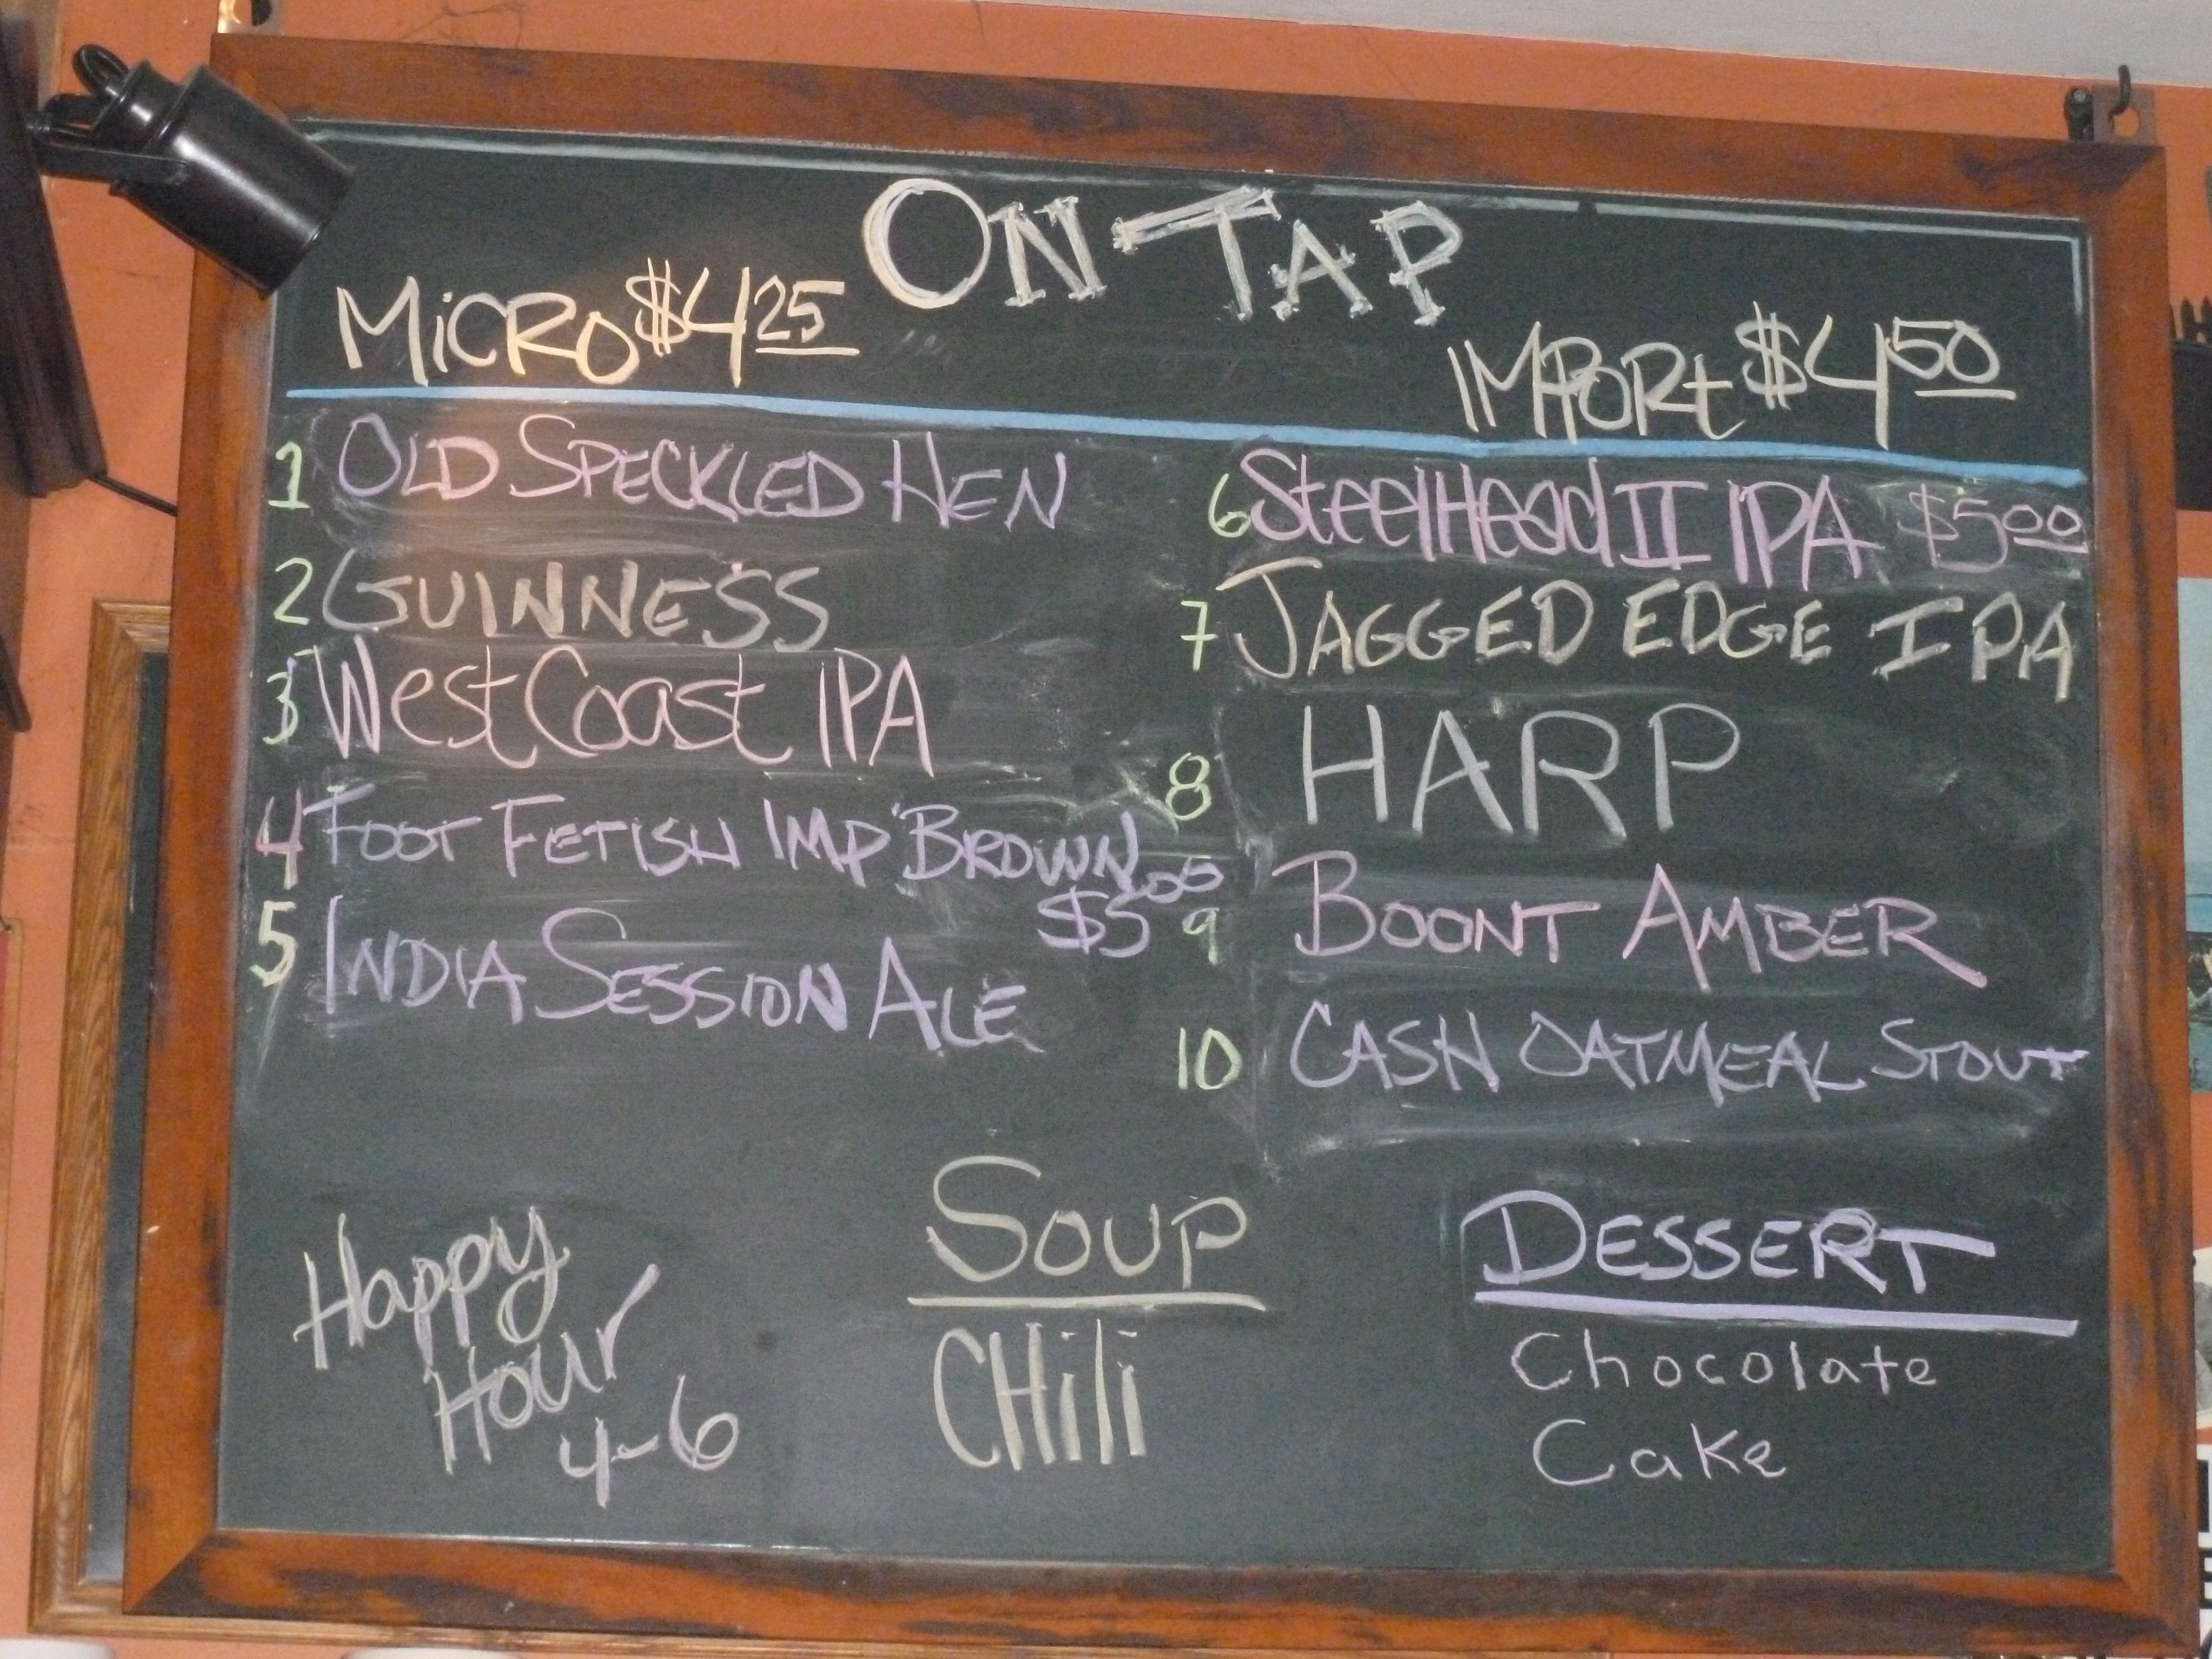 ON TAP
MiCRO $4 25
IMPORt $4 50
1 OLD SPECKLED HEN
2 GUINNESS
3 West Coast IPA
4 FOOT FETISH IMP BROWN
$5 00
5 INDIA SESSION ALE
6 SteelHead II IPA $5 00
7 JAGGED EDGE IPA
8 HARP
9 BOONT AMBER
10 CASH OATMEAL STOUT
Happy
Hour
4-6
SOUP
CHili
DESSERT
Chocolate
Cake